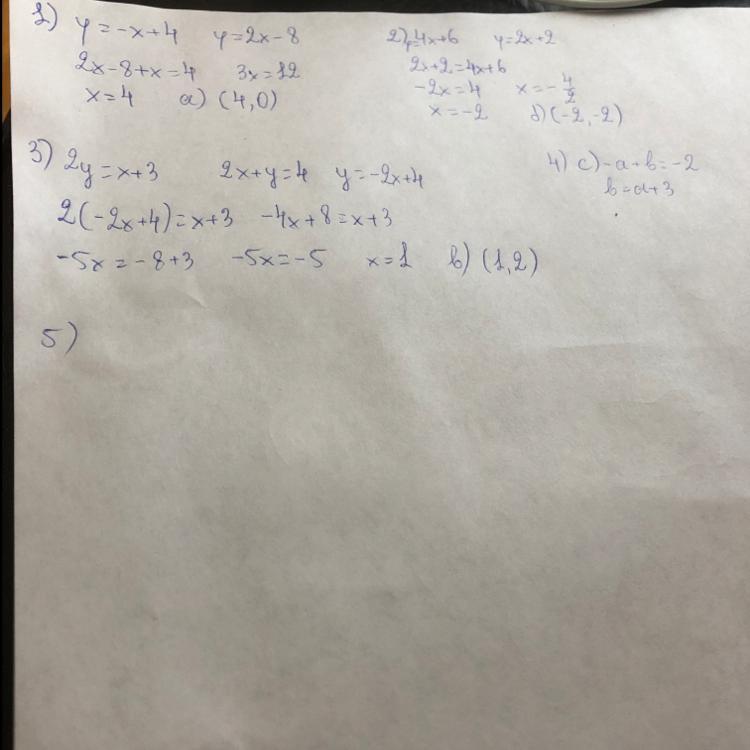 1) y=-x+4 y=2x-8
2x-8+x=4 3x=12
x=4 a) (4,0)
2) y=4x+6 y=2x+2
2x+2=4x+6
-2x=4 x=-4/2
x=-2 d) (-2,-2)
3) 2y=x+3 2x+y=4 y=-2x+4
2(-2x+4)=x+3 -4x+8=x+3
-5x=-8+3 -5x=-5 x=1 b) (1,2)
4) c) -a+b=-2
b=a+3
5)